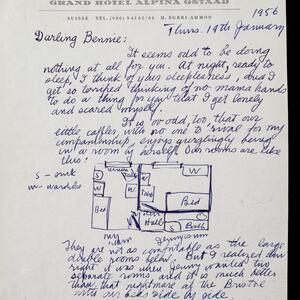 GRAND HOTEL ALPINA GSTAAD
SUISSE
M. BURRI-AMMON
1956
Thurs. 19th January
Darling Bennie:
It seems odd to be doing
nothing at all for you. At night, ready to
sleep, I think of your sleeplessness, and I
get so terrified thinking of no mama hands
to do a thing for you that I get lonely
and scared myself.
It is so odd too, that our
little with no one to for my
companionship, enjoys being
in a room by herself. Our rooms are like
this:
S - sink
W - wardrobe
S
W
W
Bed
W
Bed
Hall
Bath
my room
Jenny's room
They are not as comfortable as the large
double rooms below. But I realized
right it was when Jenny wanted two
separate rooms and it is much better
than that nightmare at the Bristol
with our beds side by side.